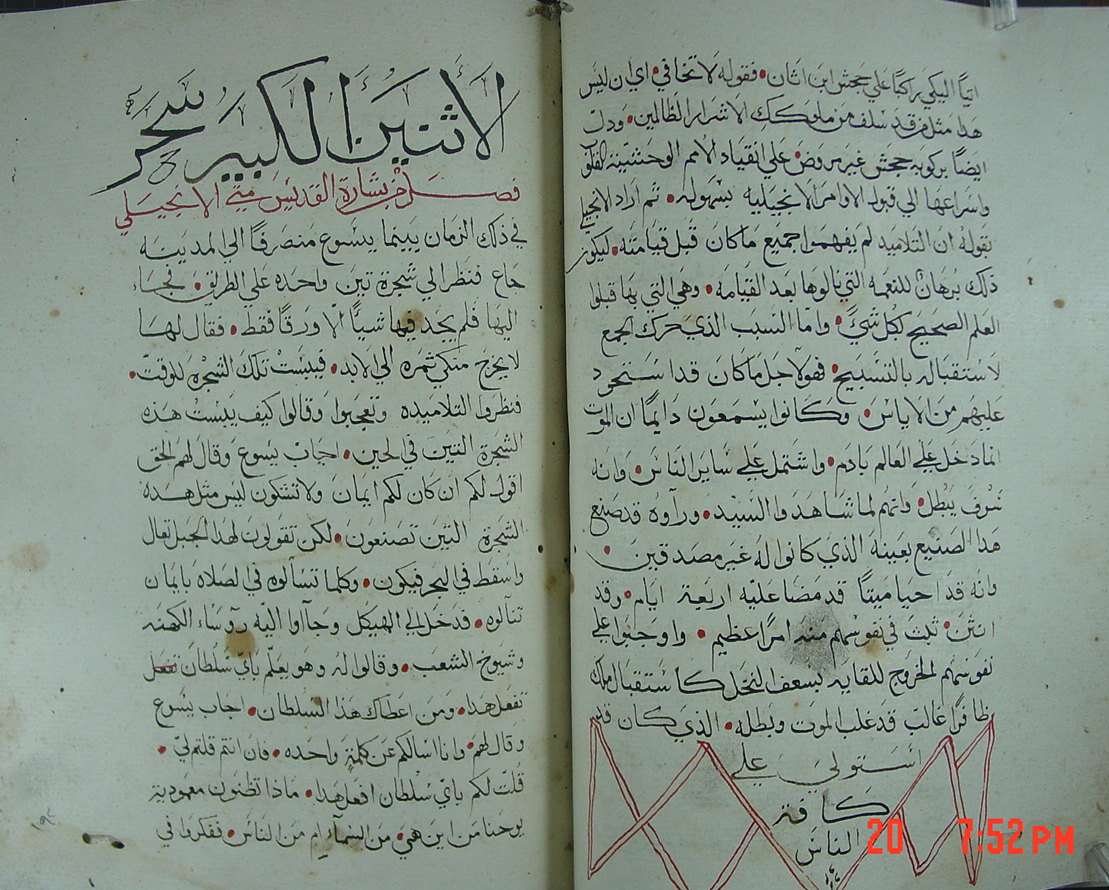 اتيًا اليكي راكبًا علي جحش ابن اتان • فقوله لا تخافي • اي ان ليس
هذا مثل من قد سلف من ملوكك الاشرار الظالمين • ودل
ايضًا بركوبه جحش غير مروض علي انقياد الامم الوحشيه
واسراعها الي قبول الاوامر الانجيليه بسهوله • ثم اراد الانجيلي
بقوله ان التلاميد لم يفهموا جميع ماكان قبل قيامته • ليكون
ذلك برهانٌ للنعمه التي نالوها بعد القيامه • وهي التي بها قبلوا
العلم الصحيح لكل شيءٍ • واما السبب الذي حرك الجمع
لاستقباله بالتسبيح • فهو لاجل ماكان قد استحود
عليهم من الاياس • وكانوا يسمعون دايمًا ان الموت
انما دخل علي العالم بادم • واشتمل علي ساير الناس • وانه
سوف يبطل • وانهم لما شاهدوا السيد • وراوه قد صنع
هذا الصنيع بعينه الذي كانوا له غير مصدقين •
وانه قد احيا ميتًا قد مضا عليه اربعة ايام • وقد
انتن • ثبت في نفوسهم منه امرًا عظيم • واوجبوا علي
نفوسهم الخروج للقايه بسعف النخل كاستقبال ملك
ظافرًا غالب قد غلب الموت وبطله • الذي كان قد
استولي علي
كافة
الناس
الاثنين الكبير سحر
فصل من بشارة القديس متي الانجيلي
في ذلك الزمان بينما يسوع منصرفًا الي المدينه
جاع فنظر الي شجرة تين واحده علي الطريق • فجاء
اليها فلم يجد فيها شيًا الا ورقًا فقط • فقال لها
لا يخرج منكي ثمره الي الابد • فيبست تلك الشجره للوقت •
فنظروا التلاميده وتعجبوا وقالوا كيف يبست هذه
الشجرة التين في الحين • اجاب يسوع وقال لهم الحق
اقول لكم ان كان لكم ايمان ولا تشكون ليس مثل هذه
الشجرة التين تصنعون • لكن تقولون لهذا الجبل تعال
واسقط في البحر فيكون • وكلما تسالوه في الصلاه بايمان
تنالوه • فدخل الي الهيكل وجاآوا اليه روساء الكهنه
وشيوخ الشعب • وقالوا له وهو يعلم باي سلطان تفعل
تفعل هذا • ومن اعطاك هذا السلطان • اجاب يسوع
وقال لهم • وانا اسالكم عن كلمة واحده • فان انتم قلتم لي •
قلت لكم باي سلطان افعل هذا • ماذا تظنون معمودية
يوحنا من اين هي • من السماء ام من الناس • ففكروا في
20 7:52 PM